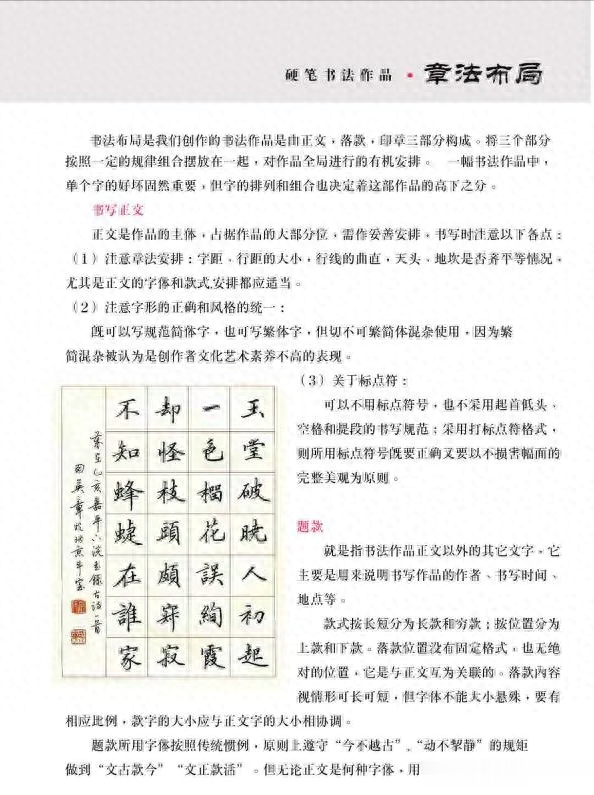 硬笔书法作品·章法布局
书法布局是我们创作的书法作品是由正文，落款，印章三部分构成。将三个部分
按照一定的规律组合摆放在一起，对作品全局进行的有机安排。 一幅书法作品中，
单个字的好坏固然重要，但字的排列和组合也决定着这部作品的高下之分。
书写正文
正文是作品的主体，占据作品的大部分位，需作妥善安排。书写时注意以下各点：
（1）注意章法安排：字距、行距的大小，行线的曲直，天头、地坎是否齐平等情况。
尤其是正文的字体和款式安排都应适当。
（2）注意字形的正确和风格的统一：
既可以写规范简体字，也可写繁体字，但切不可繁简体混杂使用，因为繁
简混杂被认为是创作者文化艺术素养不高的表现。
玉堂破曉人初起
一色榴花誤絢霞
却怪枝頭頗寂寂
不知蜂蝶在誰家
乙亥嘉平 錄古詩一首
田英章於北京
（3）关于标点符：
可以不用标点符号，也不采用起首低头、
空格和提段的书写规范；采用打标点符格式，
则所用标点符号既要正确又要以不损害幅面的
完整美观为原则。
题款
就是指书法作品正文以外的其它文字。它
主要是用来说明书写作品的作者、书写时间、
地点等。
款式按长短分为长款和穷款；按位置分为
上款和下款。落款位置没有固定格式，也无绝
对的位置，它是与正文互为关联的。落款内容
视情形可长可短，但字体不能大小悬殊，要有
相应比例，款字的大小应与正文字的大小相协调。
题款所用字体按照传统惯例，原则上遵守“今不越古”、“动不掣静”的规矩
做到“文古款今”“文正款活”。但无论正文是何种字体，用